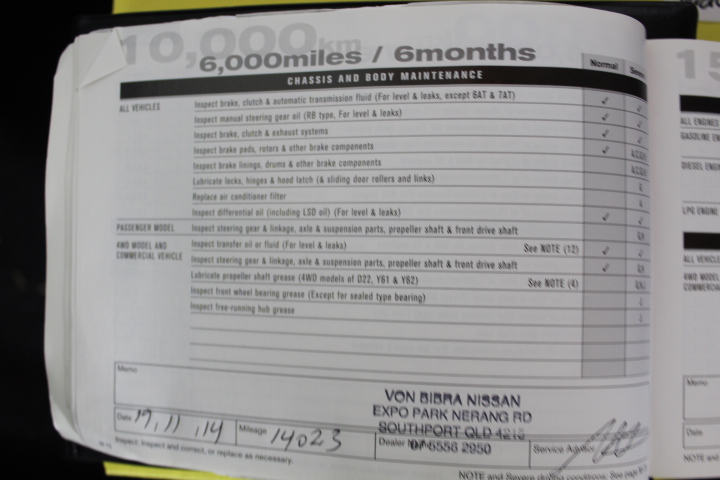 10,000km
6,000miles / 6months
CHASSIS AND BODY MAINTENANCE
Normal
ALL VEHICLES
Inspect brake, clutch & automatic transmission fluid (For level & leaks, except 6AT & 7AT)
Inspect manual steering gear oil (RB type, For level & leaks)
Inspect brake, clutch & exhaust systems
Inspect brake pads, rotors & other brake components
Inspect brake linings, drums & other brake components
Lubricate locks, hinges & hood latch (& sliding door rollers and links)
Replace air conditioner filter
Inspect differential oil (including LSD oil) (For level & leaks)
PASSENGER MODEL Inspect steering gear & linkage, axle & suspension parts, propeller shaft & front drive shaft
4WD MODEL AND COMMERCIAL VEHICLE
Inspect transfer oil or fluid (For level & leaks) See NOTE (12)
Inspect steering gear & linkage, axle & suspension parts, propeller shaft & front drive shaft
Lubricate propeller shaft grease (4WD models of D22, Y61 & Y62) See NOTE (4)
Inspect front wheel bearing grease (Except for sealed type bearing)
Inspect free-running hub grease
Memo
VON BIBRA NISSAN
EXPO PARK NERANG RD
SOUTHPORT QLD 4215
07 5556 2950
Date 17, 11, 14 Mileage 14023 Dealer Service Advisor
Inspect: Inspect and correct, or replace as necessary.
NOTE and Severe driving conditions: See page
15
ALL ENGINES
GASOLINE
DIESEL
LPG ENGINE
ALL
4WD
Memo
Date
NOTE and